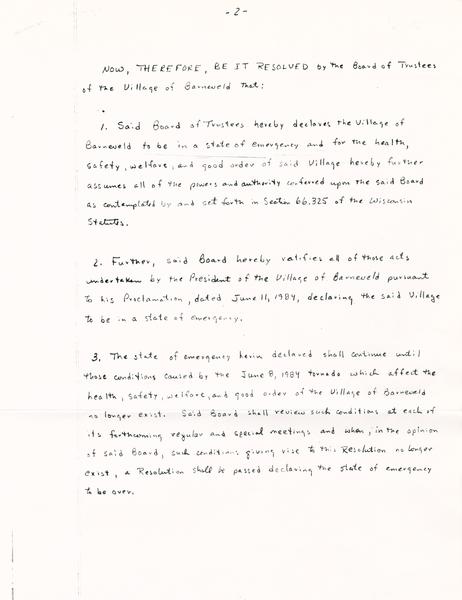 - 2 -
NOW, THEREFORE, BE IT RESOLVED by the Board of Trustees
of the Village of Barneveld that:
1. Said Board of Trustees hereby declares the Village of
Barneveld to be in a state of emergency and for the health,
safety, welfare, and good order of said Village hereby further
assumes all of the powers and authority conferred upon the said Board
as contemplated by and set forth in Section 66.325 of the Wisconsin
Statutes.
2. Further, said Board hereby ratifies all of those acts
undertaken by the President of the Village of Barneveld pursuant
to his Proclamation, dated June 11, 1984, declaring the said Village
to be in a state of emergency.
3. The state of emergency herin declared shall continue until
those conditions caused by the June 8, 1984 tornado which affect the
health, safety, welfare, and good order of the Village of Barneveld
no longer exist. Said Board shall review such conditions at each of
its forthcoming regular and special meetings and when, in the opinion
of said Board, such conditions giving rise to this Resolution no longer
exist, a Resolution shall be passed declaring the state of emergency
to be over.